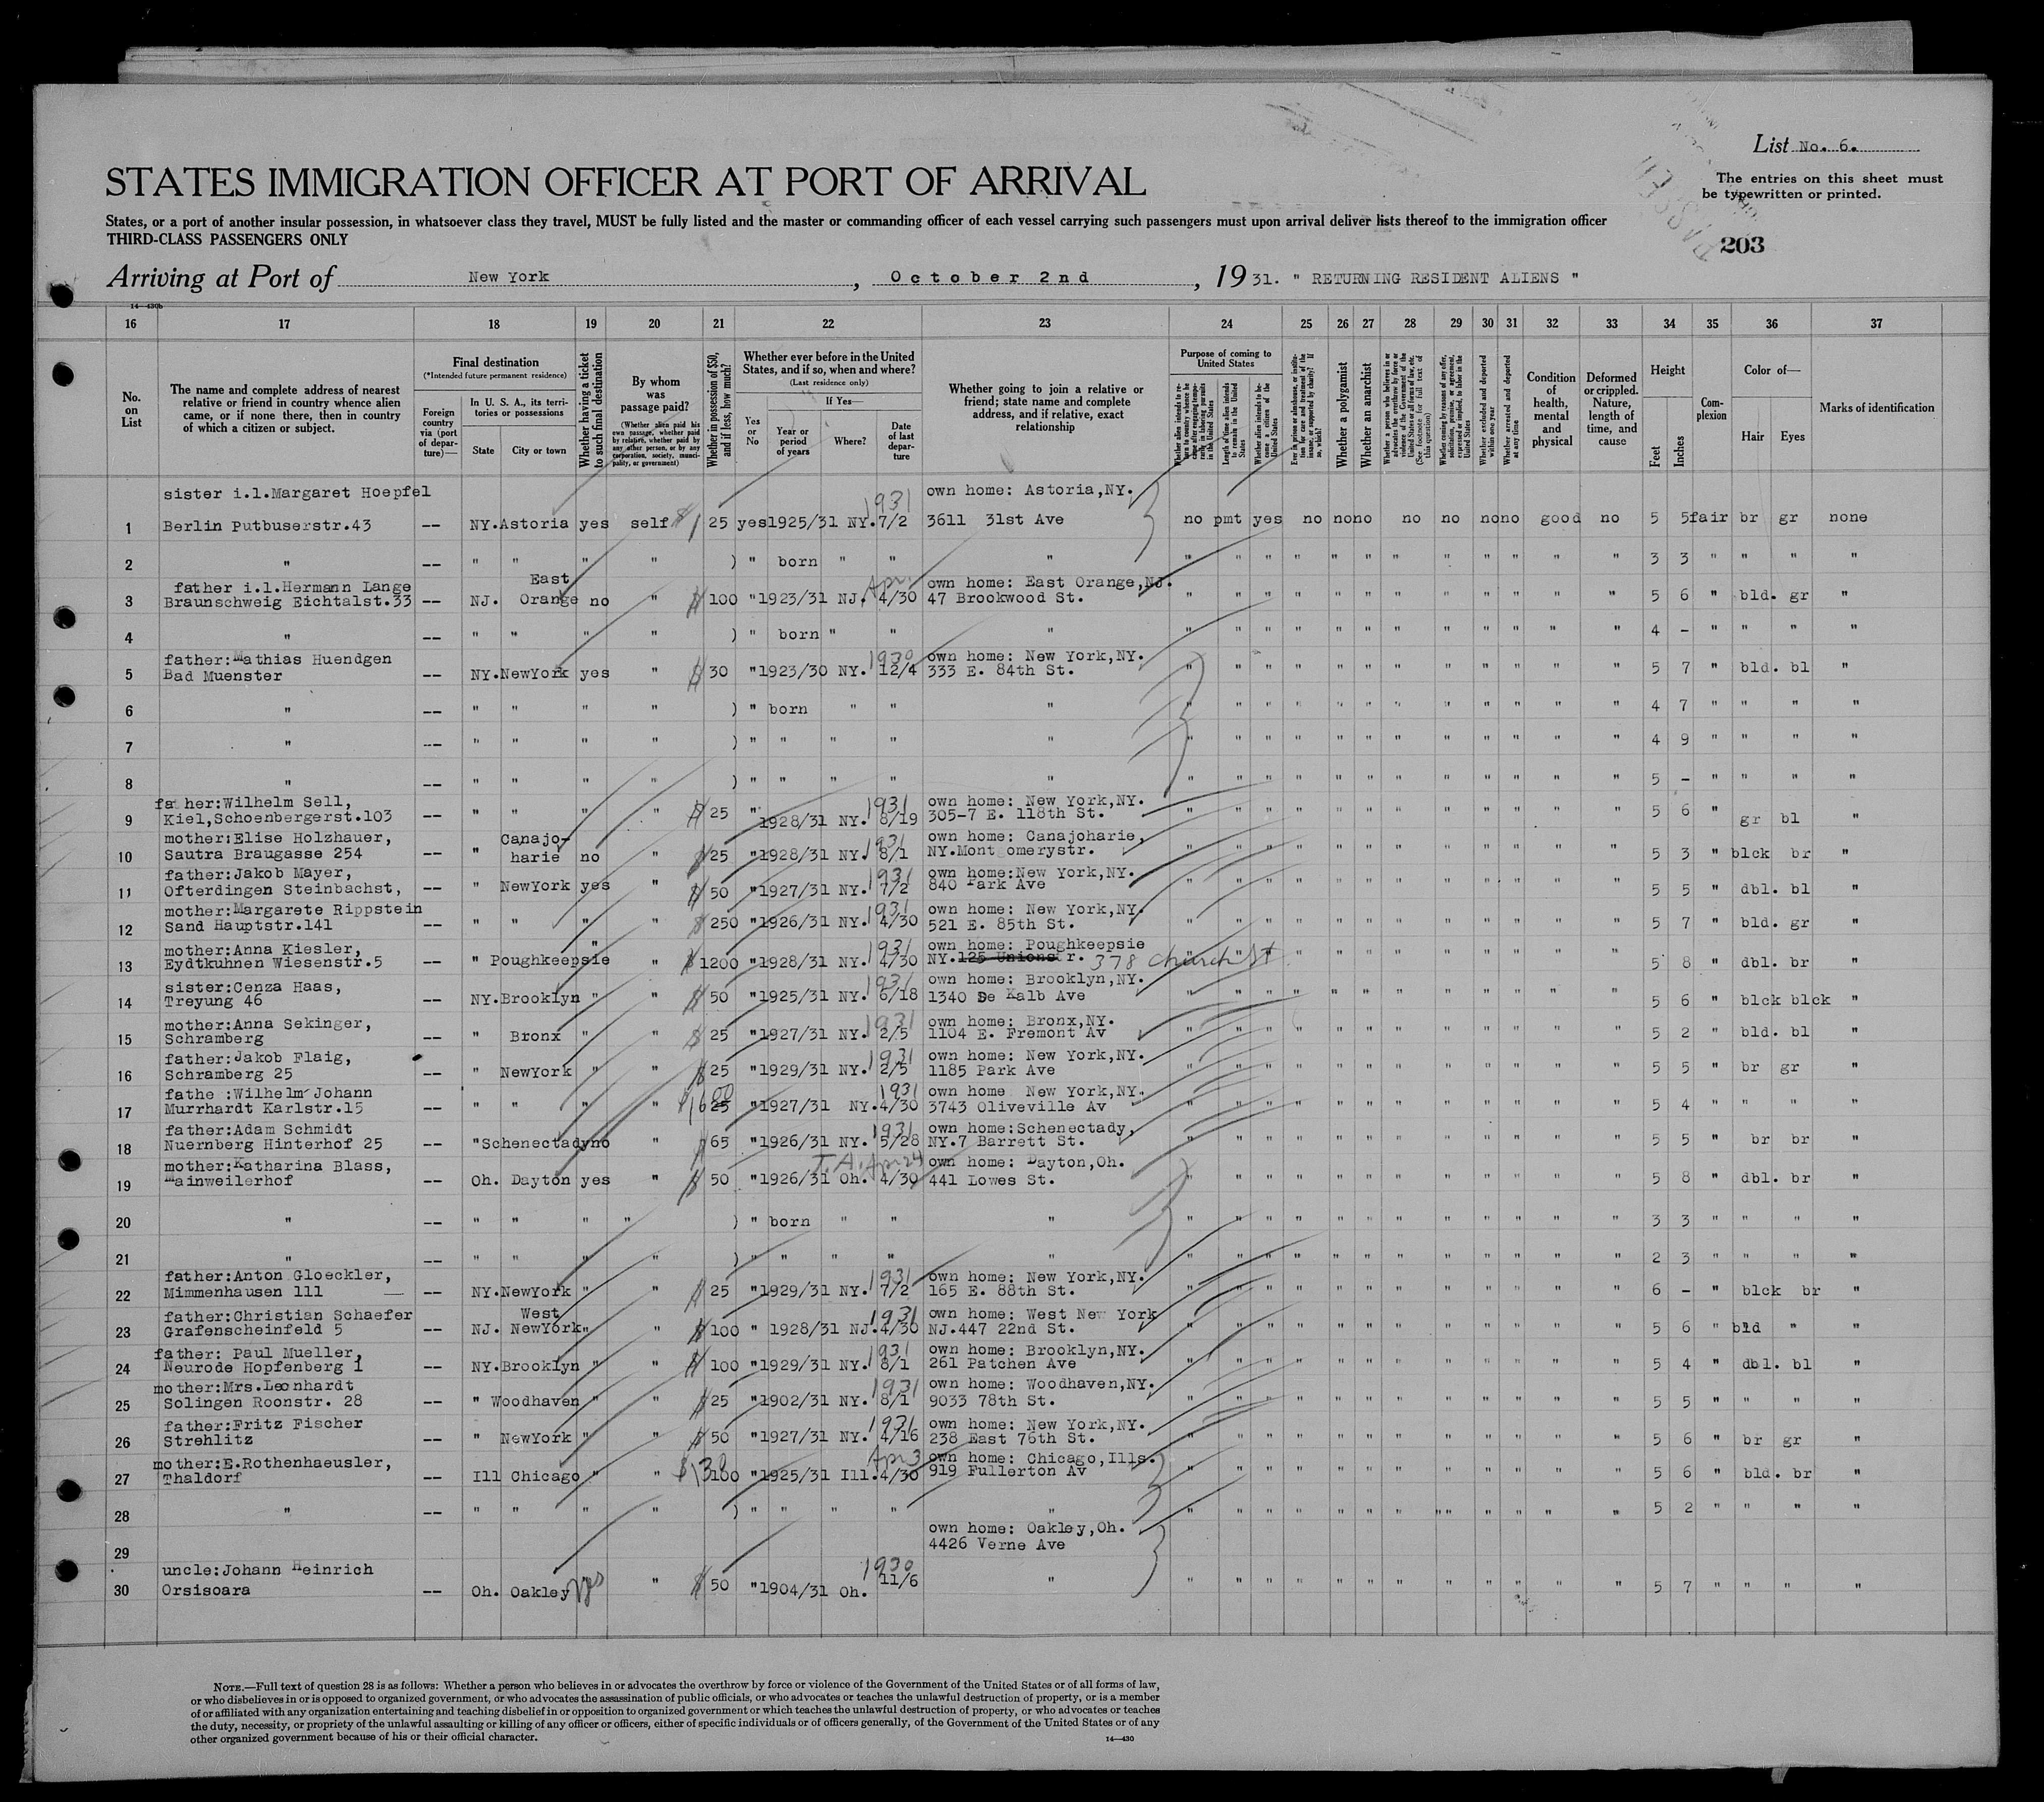 List No. 6.
STATES IMMIGRATION OFFICER AT PORT OF ARRIVAL
The entries on this sheet must
be typewritten or printed.
States, or a port of another insular possession, in whatsoever class they travel, MUST be fully listed and the master or commanding officer of each vessel carrying such passengers must upon arrival deliver lists thereof to the immigration officer
THIRD-CLASS PASSENGERS ONLY
203
Arriving at Port of New York, October 2nd, 1931. " RETURNING RESIDENT ALIENS "
14-430b
16 17 18 19 20 21 22 23 24 25 26 27 28 29 30 31 32 33 34 35 36 37
No. on List
The name and complete address of nearest relative or friend in country whence alien came, or if none there, then in country of which a citizen or subject.
Final destination
(*Intended future permanent residence)
Foreign country via (port of departure)—
In U. S. A., its territories or possessions
State City or town
Whether having a ticket to such final destination
By whom was passage paid?
(Whether alien paid his own passage, whether paid by relative, whether paid by any other person, or by any corporation, society, municipality, or government)
Whether in possession of $50, and if less, how much?
Whether ever before in the United States, and if so, when and where?
(Last residence only)
Yes or No
If Yes—
Year or period of years Where? Date of last departure
Whether going to join a relative or friend; state name and complete address, and if relative, exact relationship
Purpose of coming to United States
Whether alien intends to return to country whence he came after engaging temporarily in laboring pursuits in the United States
Length of time alien intends to remain in the United States
Whether alien intends to become a citizen of the United States
Ever in prison or almshouse, or institution for care and treatment of the insane, or supported by charity? If so, which?
Whether a polygamist
Whether an anarchist
Whether a person who believes in or advocates the overthrow by force or violence of the Government of the United States or all forms of law, etc. (See footnote for full text of this question)
Whether coming by reason of any offer, solicitation, promise, or agreement, expressed or implied, to labor in the United States
Whether excluded and deported within one year
Whether arrested and deported at any time
Condition of health, mental and physical
Deformed or crippled. Nature, length of time, and cause
Height
Feet Inches
Complexion
Color of—
Hair Eyes
Marks of identification
sister i.l.Margaret Hoepfel 1931 own home: Astoria,NY.
1 Berlin Putbuserstr.43 -- NY. Astoria yes self $ 25 yes 1925/31 NY. 7/2 3611 31st Ave no pmt yes no no no no no no no good no 5 5 fair br gr none
2 " -- " " " " ) " born " " " " " " " " " " " " " " " 3 3 " " " "
father i.l.Hermann Lange East Apr. own home: East Orange,NJ.
3 Braunschweig Eichtalst.33 -- NJ. Orange no " $ 100 " 1923/31 NJ. 4/30 47 Brookwood St. " " " " " " " " " " " " 5 6 " bld. gr "
4 " -- " " " " ) " born " " " " " " " " " " " " " " " 4 - " " " "
father:Mathias Huendgen 1930 own home: New York,NY.
5 Bad Muenster -- NY. NewYork yes " $ 30 " 1923/30 NY. 12/4 333 E. 84th St. " " " " " " " " " " " " 5 7 " bld. bl "
6 " -- " " " " ) " born " " " " " " " " " " " " " " " 4 7 " " " "
7 " -- " " " " ) " " " " " " " " " " " " " " " " " 4 9 " " " "
8 " -- " " " " ) " " " " " " " " " " " " " " " " " 5 - " " " "
father:Wilhelm Sell, 1931 own home: New York,NY.
9 Kiel,Schoenbergerst.103 -- " " " " $ 25 " 1928/31 NY. 8/19 305-7 E. 118th St. " " " " " " " " " " " " 5 6 " gr bl "
mother:Elise Holzhauer, Canajo- 1931 own home: Canajoharie,
10 Sautra Braugasse 254 -- " harie no " $ 25 " 1928/31 NY. 8/1 NY.Montgomerystr. " " " " " " " " " " " " 5 3 " blck br "
father:Jakob Mayer, 1931 own home:New York,NY.
11 Ofterdingen Steinbachst, -- " NewYork yes " $ 50 " 1927/31 NY. 7/2 840 Park Ave " " " " " " " " " " " " 5 5 " dbl. bl "
mother:Margarete Rippstein 1931 own home: New York,NY.
12 Sand Hauptstr.141 -- " " " " $ 250 " 1926/31 NY. 4/30 521 E. 85th St. " " " " " " " " " " " " 5 7 " bld. gr "
mother:Anna Kiesler, " 1931 own home: Poughkeepsie
13 Eydtkuhnen Wiesenstr.5 -- " Poughkeepsie " $ 1200 " 1928/31 NY. 4/30 NY.125 Unionstr. 378 Church St " " " " " " " " " " " " 5 8 " dbl. br "
sister:Cenza Haas, 1931 own home: Brooklyn,NY.
14 Treyung 46 -- NY. Brooklyn " " $ 50 " 1925/31 NY. 6/18 1340 De Kalb Ave " " " " " " " " " " " " 5 6 " blck blck "
mother:Anna Sekinger, 1931 own home: Bronx,NY.
15 Schramberg -- " Bronx " " $ 25 " 1927/31 NY. 2/5 1104 E. Fremont Av " " " " " " " " " " " " 5 2 " bld. bl "
father:Jakob Flaig, 1931 own home: New York,NY.
16 Schramberg 25 -- " NewYork " " $ 25 " 1929/31 NY. 2/5 1185 Park Ave " " " " " " " " " " " " 5 5 " br gr "
fathe :Wilhelm Johann 1931 own home New York,NY.
17 Murrhardt Karlstr.15 -- " " " " $1600 25 " 1927/31 NY. 4/30 3743 Oliveville Av " " " " " " " " " " " " 5 4 " " " "
father:Adam Schmidt 1931 own home:Schenectady,
18 Nuernberg Hinterhof 25 -- " Schenectady no " $ 65 " 1926/31 NY. 5/28 NY.7 Barrett St. " " " " " " " " " " " " 5 5 " br br "
mother:Katharina Blass, T.A. Apr 24 own home: Dayton,Oh.
19 Mainweilerhof -- Oh. Dayton yes " $ 50 " 1926/31 Oh. 4/30 441 Lowes St. " " " " " " " " " " " " 5 8 " dbl. br "
20 " -- " " " " ) " born " " " " " " " " " " " " " " " 3 3 " " " "
21 " -- " " " " ) " " " " " " " " " " " " " " " " " 2 3 " " " "
father:Anton Gloeckler, 1931 own home: New York,NY.
22 Mimmenhausen 111 -- NY. NewYork " " $ 25 " 1929/31 NY. 7/2 165 E. 88th St. " " " " " " " " " " " " 6 - " blck br "
father:Christian Schaefer West 1931 own home: West New York
23 Grafenscheinfeld 5 -- NJ. NewYork " " $ 100 " 1928/31 NJ. 4/30 NJ.447 22nd St. " " " " " " " " " " " " 5 6 " bld " "
father: Paul Mueller, 1931 own home: Brooklyn,NY.
24 Neurode Hopfenberg 1 -- NY. Brooklyn " " $ 100 " 1929/31 NY. 8/1 261 Patchen Ave " " " " " " " " " " " " 5 4 " dbl. bl "
mother:Mrs.Leonhardt 1931 own home: Woodhaven,NY.
25 Solingen Roonstr. 28 -- " Woodhaven " " $ 25 " 1902/31 NY. 8/1 9033 78th St. " " " " " " " " " " " " 5 5 " " " "
father:Fritz Fischer 1931 own home: New York,NY.
26 Strehlitz -- " NewYork " " $ 50 " 1927/31 NY. 4/16 238 East 76th St. " " " " " " " " " " " " 5 6 " br gr "
mother:E.Rothenhaeusler, Apr 3 own home: Chicago,Ills.
27 Thaldorf -- Ill Chicago " " $ 100 " 1925/31 Ill. 4/30 919 Fullerton Av " " " " " " " " " " " " 5 6 " bld. br "
28 " -- " " " " ) " " " " " " " " " " " " " " " " " 5 2 " " " "
own home: Oakley,Oh.
29 4426 Verne Ave
uncle:Johann Heinrich 1930
30 Orsisoara -- Oh. Oakley yes " $ 50 " 1904/31 Oh. 11/6 " " " " " " " " " " " " " 5 7 " " " "
NOTE.—Full text of question 28 is as follows: Whether a person who believes in or advocates the overthrow by force or violence of the Government of the United States or of all forms of law,
or who disbelieves in or is opposed to organized government, or who advocates the assassination of public officials, or who advocates or teaches the unlawful destruction of property, or is a member
of or affiliated with any organization entertaining and teaching disbelief in or opposition to organized government or which teaches the unlawful destruction of property, or who advocates or teaches
the duty, necessity, or propriety of the unlawful assaulting or killing of any officer or officers, either of specific individuals or of officers generally, of the Government of the United States or of any
other organized government because of his or their official character.
14-430